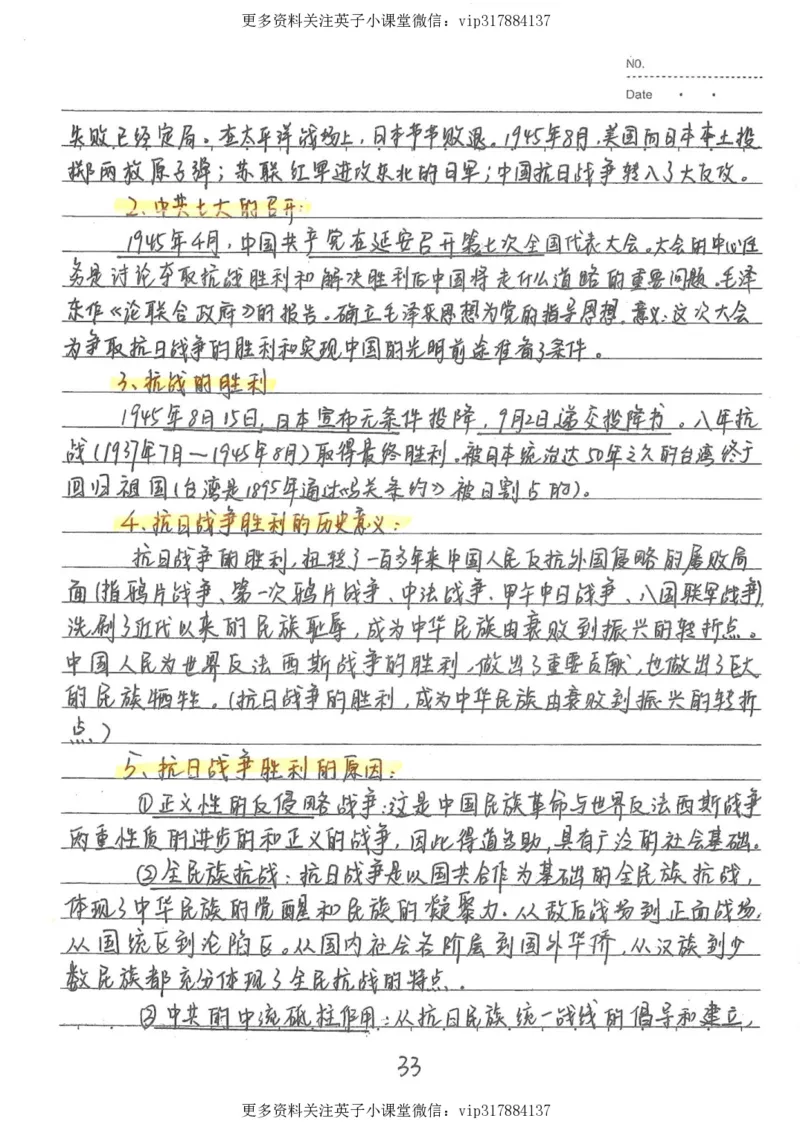 更多资料关注英子小课堂微信：vip317884137
NO.
Date
失败已经定局。在太平洋战场上，日本节节败退。1945年8月，美国向日本本土投
掷两枚原子弹；苏联红军进攻东北的日军；中国抗日战争转入了大反攻。
2、中共七大的召开：
1945年4月，中国共产党在延安召开第七次全国代表大会。大会的中心任
务是讨论夺取抗战胜利和解决胜利后中国将走什么道路的重要问题。毛泽
东作《论联合政府》的报告。确立毛泽东思想为党的指导思想。意义：这次大会
为争取抗日战争的胜利和实现中国的光明前途准备了条件。
3、抗战的胜利
1945年8月15日，日本宣布无条件投降，9月2日递交投降书。八年抗
战（1937年7月—1945年8月）取得最终胜利。被日本统治达50年之久的台湾终于
回归祖国（台湾是1895年通过《马关条约》被日割占的）。
4、抗日战争胜利的历史意义：
抗日战争的胜利，扭转了一百多年来中国人民反抗外国侵略的屡败局
面（指鸦片战争、第一次鸦片战争、中法战争、甲午中日战争、八国联军战争），
洗刷了近代以来的民族耻辱，成为中华民族由衰败到振兴的转折点。
中国人民为世界反法西斯战争的胜利，做出了重要贡献，也做出了巨大
的民族牺牲。（抗日战争的胜利，成为中华民族由衰败到振兴的转折
点。）
5、抗日战争胜利的原因：
①正义性的反侵略战争：这是中国民族革命与世界反法西斯战争
两重性质的进步的和正义的战争，因此得道多助，具有广泛的社会基础。
②全民族抗战：抗日战争是以国共合作为基础的全民族抗战，
体现了中华民族的觉醒和民族的凝聚力。从敌后战场到正面战场，
从国统区到沦陷区。从国内社会各阶层到国外华侨，从汉族到少
数民族都充分体现了全民抗战的特点。
③中共的中流砥柱作用：从抗日民族统一战线的倡导和建立，
33
更多资料关注英子小课堂微信：vip317884137